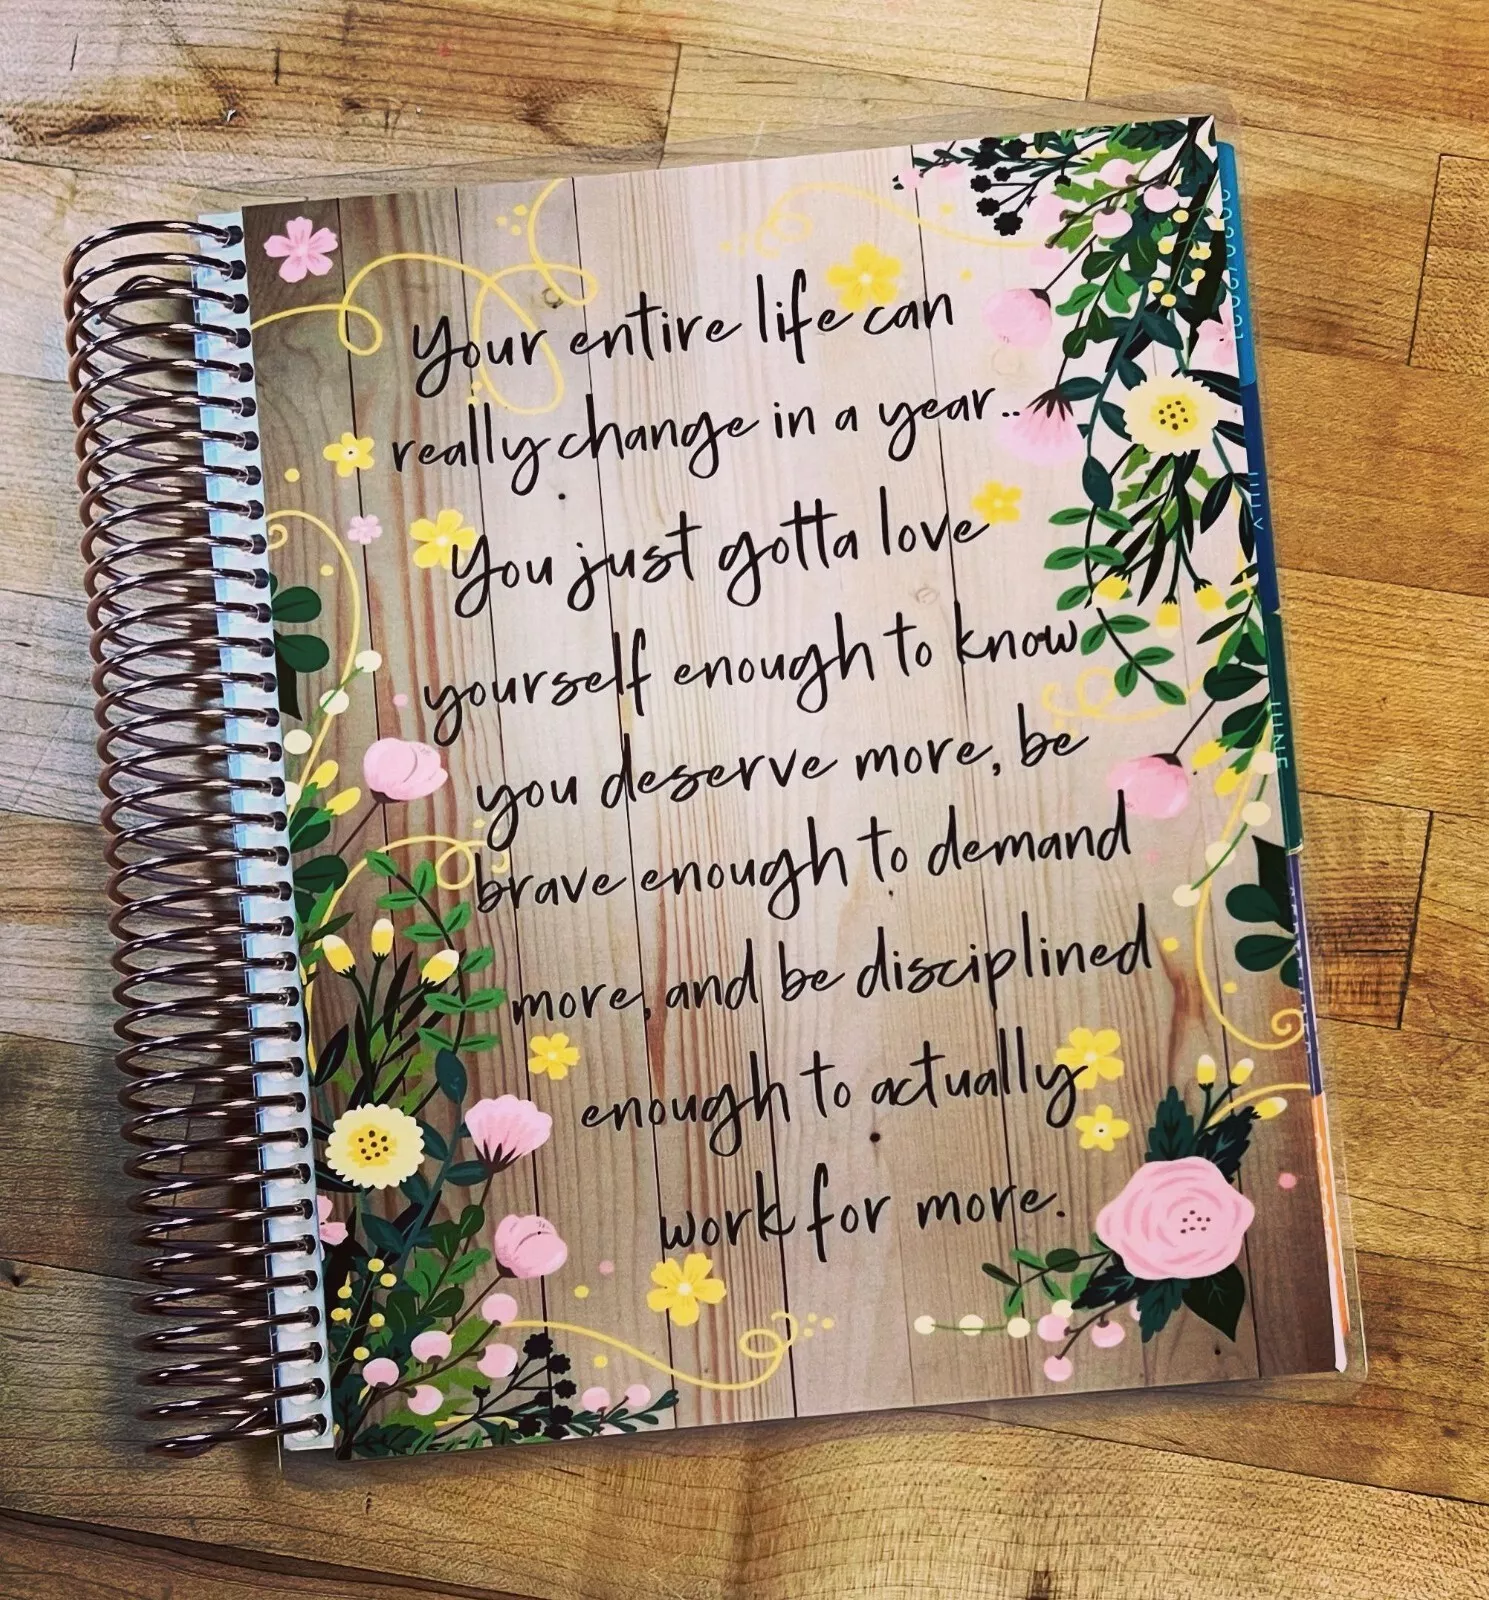 Your entire life can
really change in a year..
You just gotta love
yourself enough to know
you deserve more, be
brave enough to demand
more, and be disciplined
enough to actually
work for more.
2020/2021
JULY
JUNE